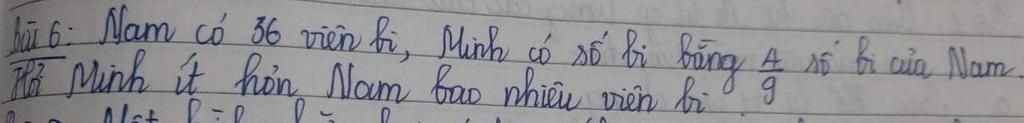 Bài 6: Nam có 36 viên bi, Minh có số bi bằng 4/9 số bi của Nam.
Hỏi Minh ít hơn Nam bao nhiêu viên bi